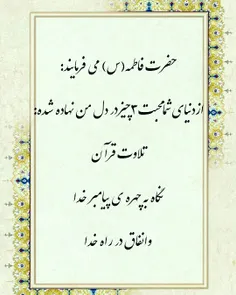 حضرت فاطمه (س) می فرمایند:
از دنیای شما محبت ۳ چیز در دل من نهاده شده:
تلاوت قرآن
نگاه به چهره ی پیامبر خدا
و انفاق در راه خدا